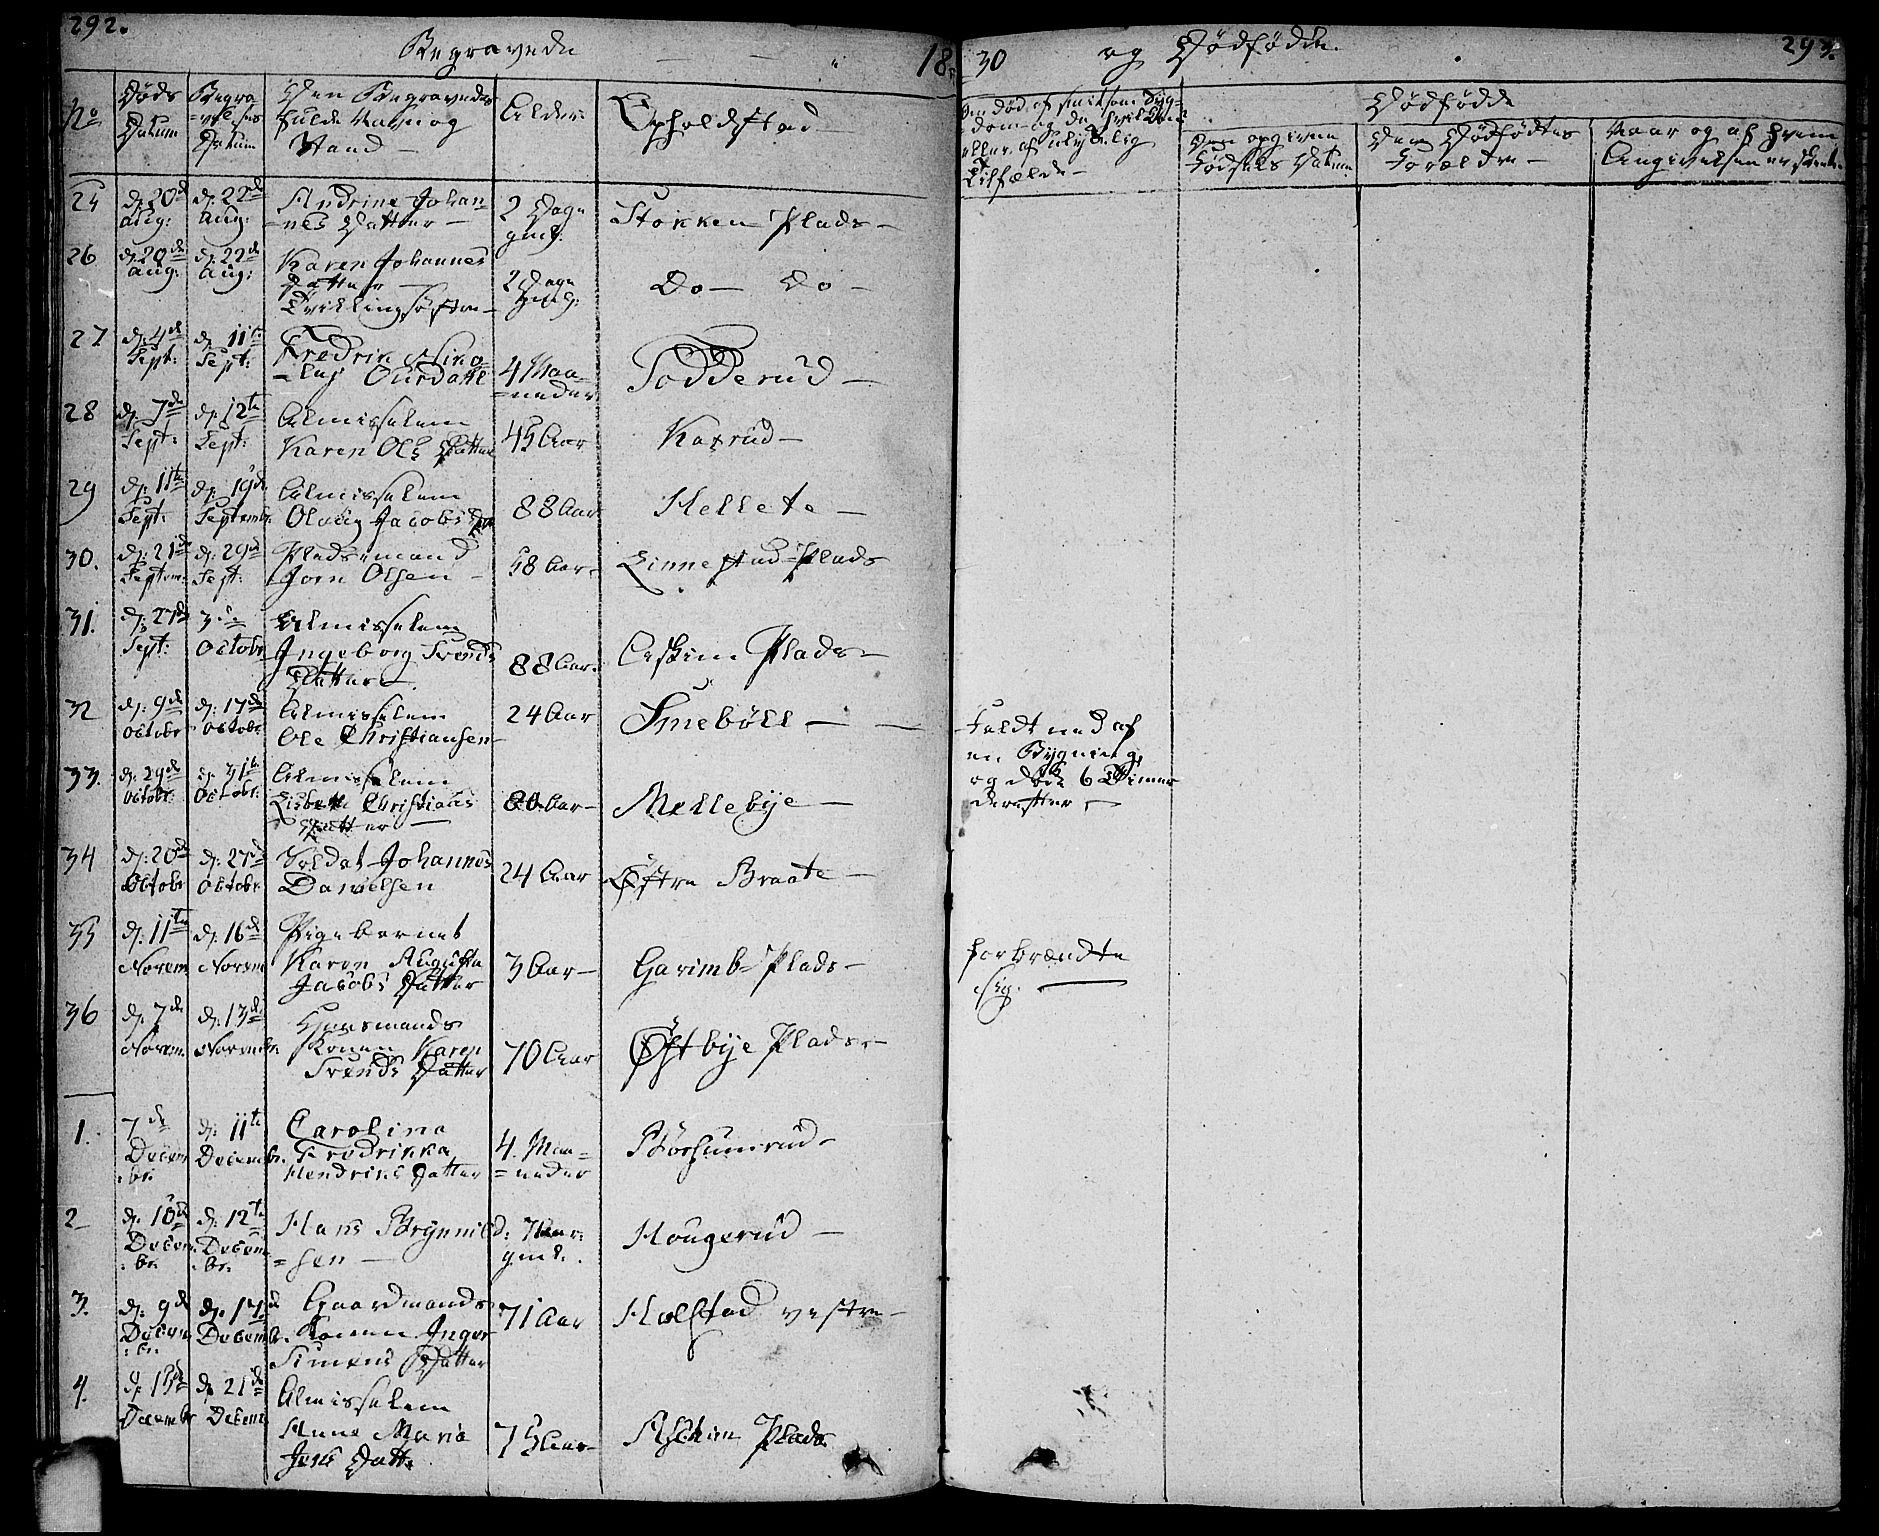 292.
Begravede
18
30
og Dødfødde.
293.
No
Døds
Datum
Begra
=velses
Datum
Den Begravedes
fulde Navn og
Stand —
Alder.
Opholdsstad
Om død af smitsom Syg=
dom og da hvilken?
eller af ulykkelig
Tilfælde —
Dødfødde
Den opgivne
Fødsels Datum
Den Dødfødtes
Forældre —
Naar og af hvem
Angivelsen er skeet.
25
d. 20de
Aug:
d. 22de
Aug:
Andrine Johan=
=nes Datter —
2 Dage
gml:
Stokken Plads —
26
d. 20de
Aug:
d. 22de
Aug:
Karen Johannes
Datter —
Tvillingsøstre —
2 Dage
gml:
Do — Do —
27
d. 4de
Sept:
d. 11te
Sept:
Fredrik
4 Maa=
=neder
Todderud —
28
d. 7de
Sept:
d. 12te
Sept:
Almisselem
Karen Ols Datter
45 Aar
Kasrud —
29
d. 11te
Sept:
d. 19de
Septembr.
Almisselem
Olaug Jacobsdatter
88 Aar
Hellete —
30.
d: 21de
Septem:
d: 29de
Sept:
Pladsemand
Jorn Olsen —
58 Aar.
Linnestad-Plads
31.
d: 27de
Sept:
3de
Octobr.
Almisselem
Ingeborg Svends
Datter —
88 Aar.
Askim Plads —
32
d: 9de
Octobr
d: 17de
Octobr.
Almisselem
Ole Christiansen —
24 Aar
Smebøll —
Faldt ned af
en Bygning,
og døde 6 Timer
derefter —
33.
d: 29de
Octobr:
d. 31te
Octobr.
Almisselem
Lisbeth Christians
Datter —
80 Aar —
Mellebye —
34
d: 20de
Octobr
d: 27de
Octobr.
Soldat Johannes
Danielsen
24 Aar
Østre Braate —
35
d: 11te
Novem
d: 16de
Novem
Pigebarnet
Karen Augusta
Jacobs Datter
3 Aar —
Garimb-Plads —
forbrændte
sig. —
36
d: 7de
Novem.
d: 13de
Novembr.
Huusmands
Konen Karen
Svends Datter
70 Aar
Østbye Plads —
1.
7de
Decem
:br.
d: 11te
Decembr.
Carolina
Fredrikka
Hendriks Datter
4. Maa=
=neder
Børsumrud —
2
d: 10de
Decem
:br.
d: 12te
Decem
:br.
Hans Brynnild
=sen —
7 Aar:
gml:
Hougerud —
3.
d: 9de
Decem
:br.
d: 17de
Decembr.
Gaardmands
Konen Inger
Simens Datter
71 Aar
Hølstad vestre —
4.
d. 15de
Decembr
d. 21de
Decem
Almisselem
Anne Maria
Jens Datt.
75 Aar —
Askim Plads